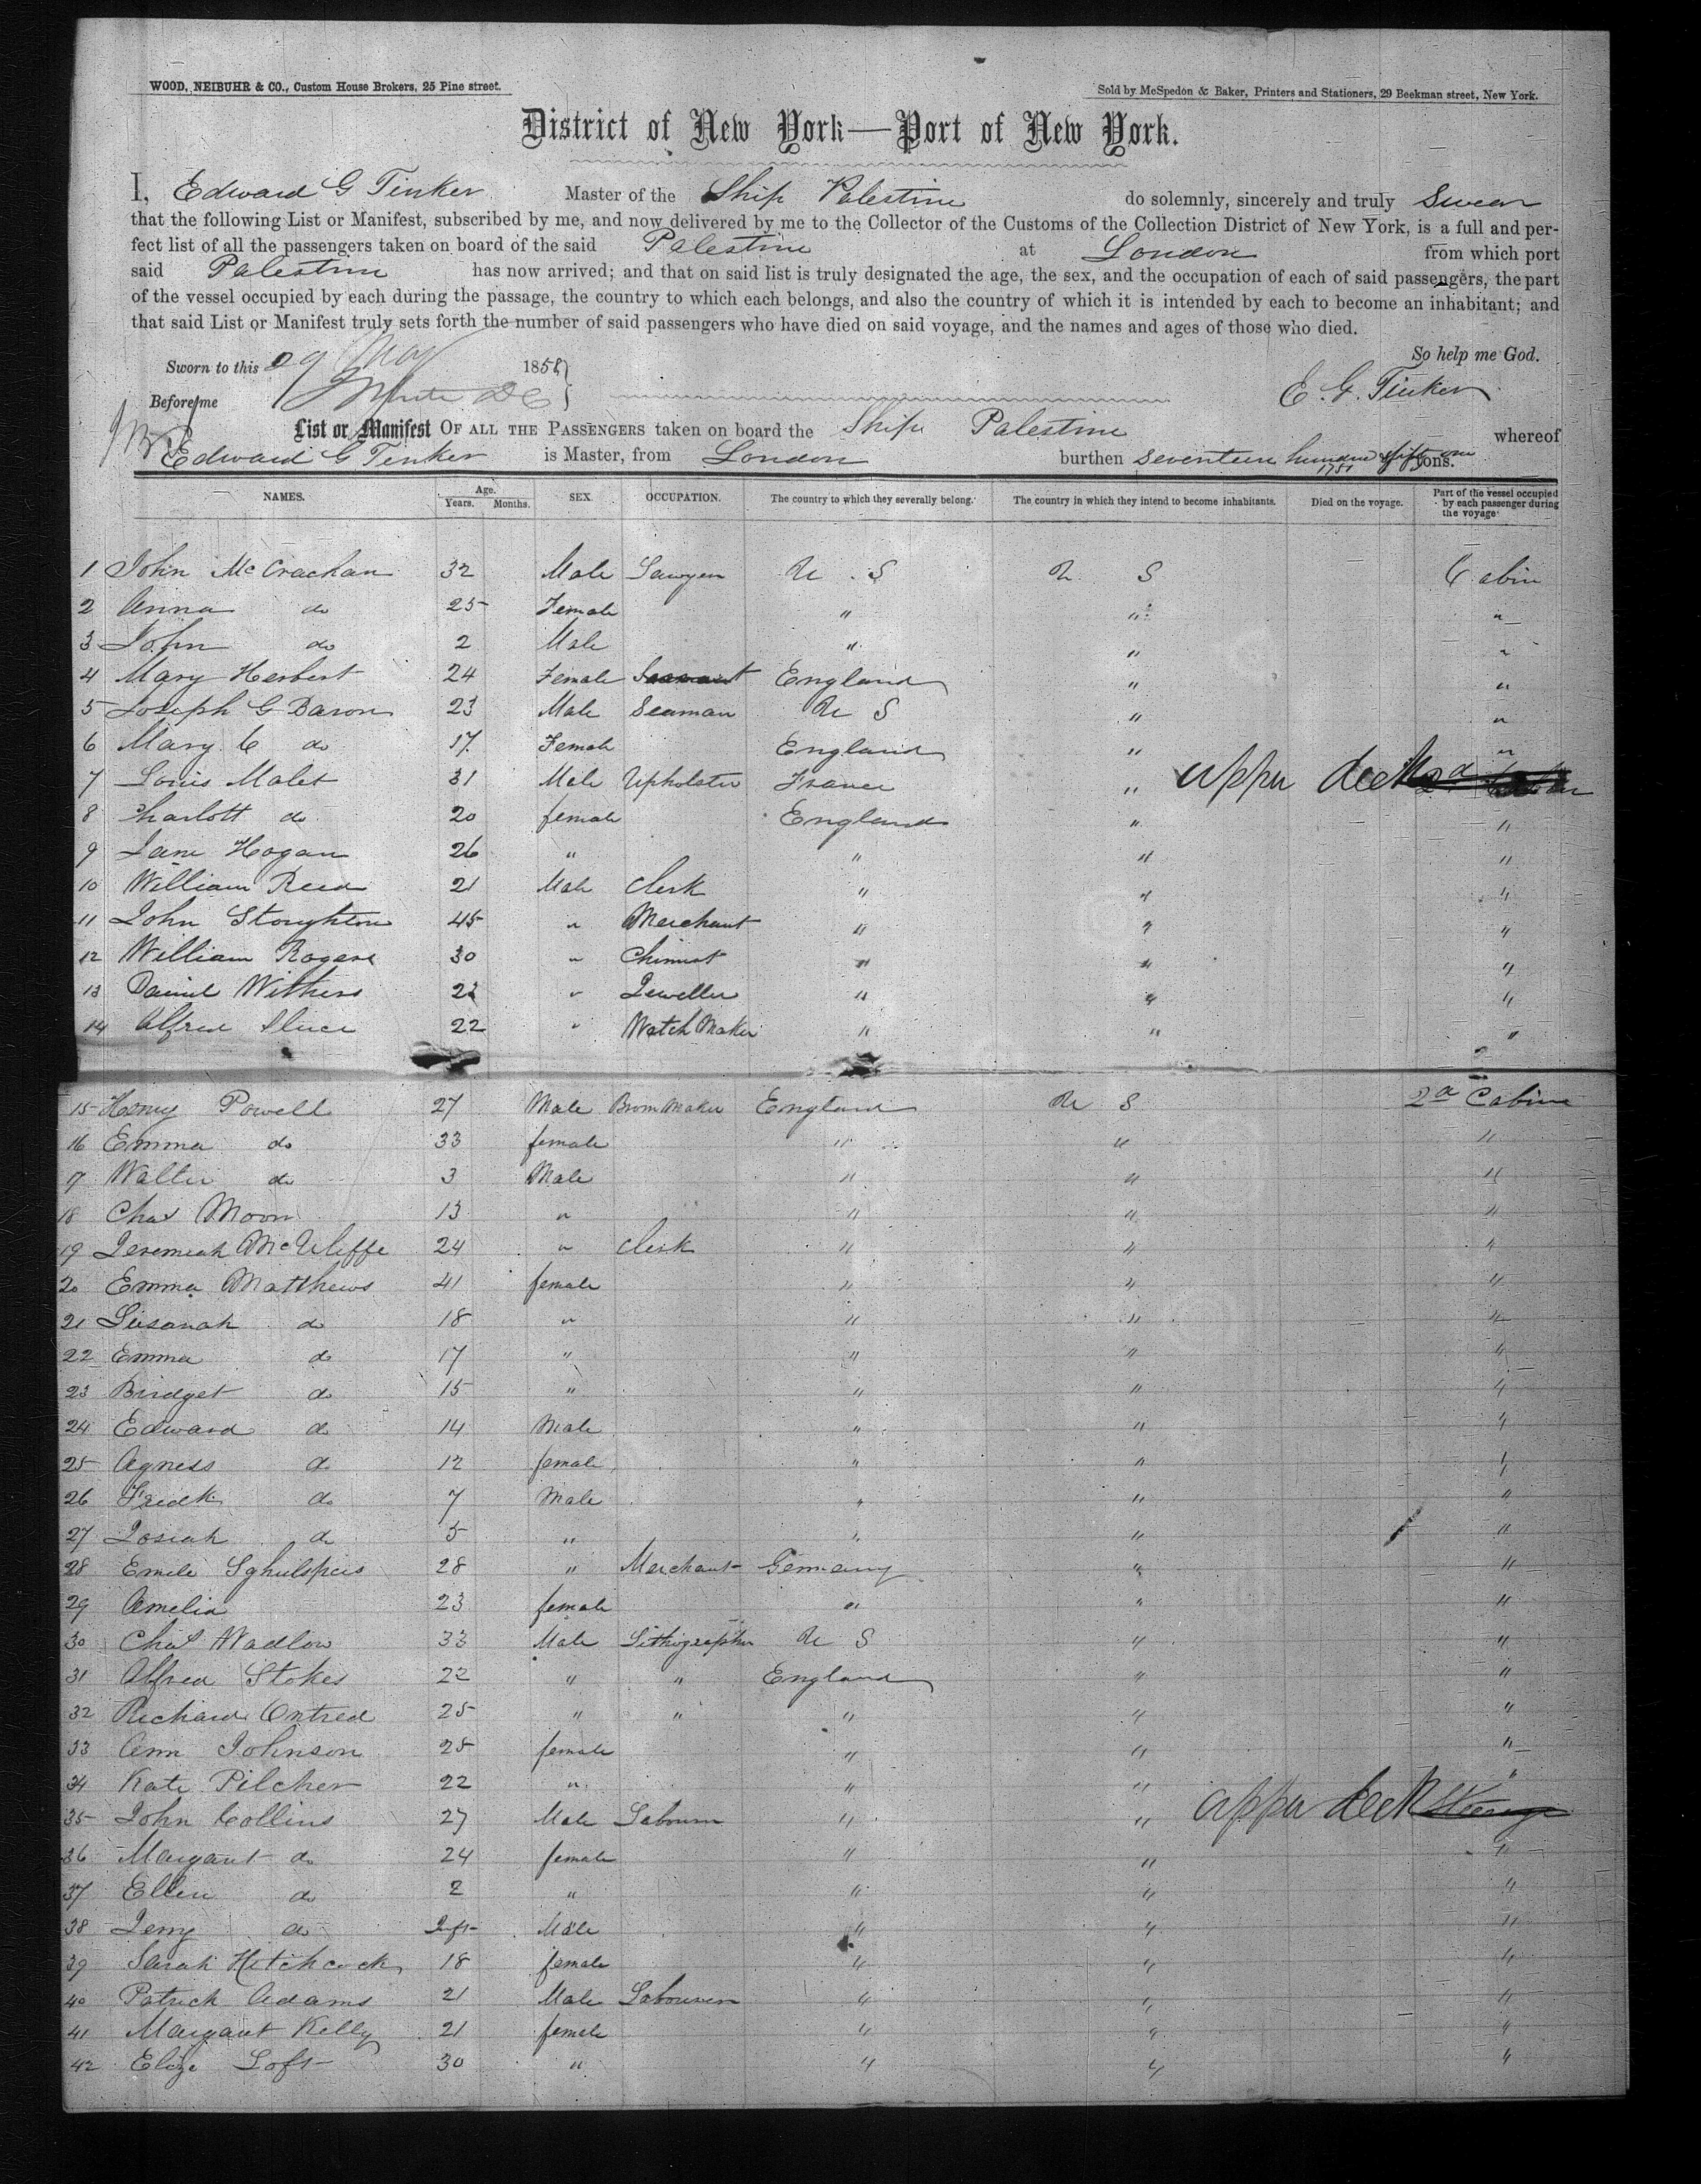 WOOD, NEIBUHR & CO., Custom House Brokers, 25 Pine street.
Sold by McSpedon & Baker, Printers and Stationers, 29 Beekman street, New York.
District of New York—Port of New York.
I, Edward G Tinker Master of the Ship Palestine do solemnly, sincerely and truly swear
that the following List or Manifest, subscribed by me, and now delivered by me to the Collector of the Customs of the Collection District of New York, is a full and per-
fect list of all the passengers taken on board of the said Palestine at London from which port
said Palestine has now arrived; and that on said list is truly designated the age, the sex, and the occupation of each of said passengers, the part
of the vessel occupied by each during the passage, the country to which each belongs, and also the country of which it is intended by each to become an inhabitant; and
that said List or Manifest truly sets forth the number of said passengers who have died on said voyage, and the names and ages of those who died.
So help me God.
Sworn to this 29 May 1858
E. G. Tinker
Before me
List or Manifest OF ALL THE PASSENGERS taken on board the Ship Palestine whereof
Edward G Tinker is Master, from London burthen seventeen hundred fifty one 1751 tons.
NAMES. Age. Years. Months. SEX. OCCUPATION. The country to which they severally belong. The country in which they intend to become inhabitants. Died on the voyage. Part of the vessel occupied by each passenger during the voyage
1 John McCrachan 32 Male Sawyer U. S U S Cabin
2 Anna do 25 Female " " "
3 John do 2 Male " " "
4 Mary Herbert 24 Female England " "
5 Joseph G Baron 23 Male Seaman U S " "
6 Mary C do 17 Female England " "
7 Louis Malet 31 Male Upholster France " upper deck
8 Charlott do 20 female England " "
9 Jane Hogan 26 " " " "
10 William Reed 21 Male Clerk " " "
11 John Stoughton 45 " Merchant " " "
12 William Rogers 30 " Chimist " " "
13 Daniel Withers 23 " Jeweller " " "
14 Alfred Sluce 22 " Watch Maker " " "
15 Henry Powell 27 Male Brom Maker England U S 2d Cabin
16 Emma do 33 female " " "
17 Walter do 3 Male " " "
18 Chas Moon 13 " " " "
19 Jeremiah McUliffe 24 " Clerk " " "
20 Emma Matthews 41 female " " "
21 Susanah do 18 " " " "
22 Emma do 17 " " " "
23 Bridget do 15 " " " "
24 Edward do 14 Male " " "
25 Agness do 12 female " " "
26 Fredk do 7 Male " " "
27 Josiah do 5 " " " "
28 Emile 28 " Merchant Germany " "
29 Amelia 23 female " " "
30 Chas Wadlow 33 Male Lithographer U S " "
31 Alfred Stokes 22 " " England " "
32 Richard Ontred 25 " " " " "
33 Ann Johnson 25 female " " "
34 Kate Pilcher 22 " " " "
35 John Collins 27 Male Labourer " " upper deck
36 Margaret do 24 female " " "
37 Ellen do 2 " " " "
38 Jerry do Inft Male " " "
39 Sarah Hitchcock 18 female " " "
40 Patrick Adams 21 Male Labourer " " "
41 Margaret Kelly 21 female " " "
42 Eliza Loft 30 " " " "